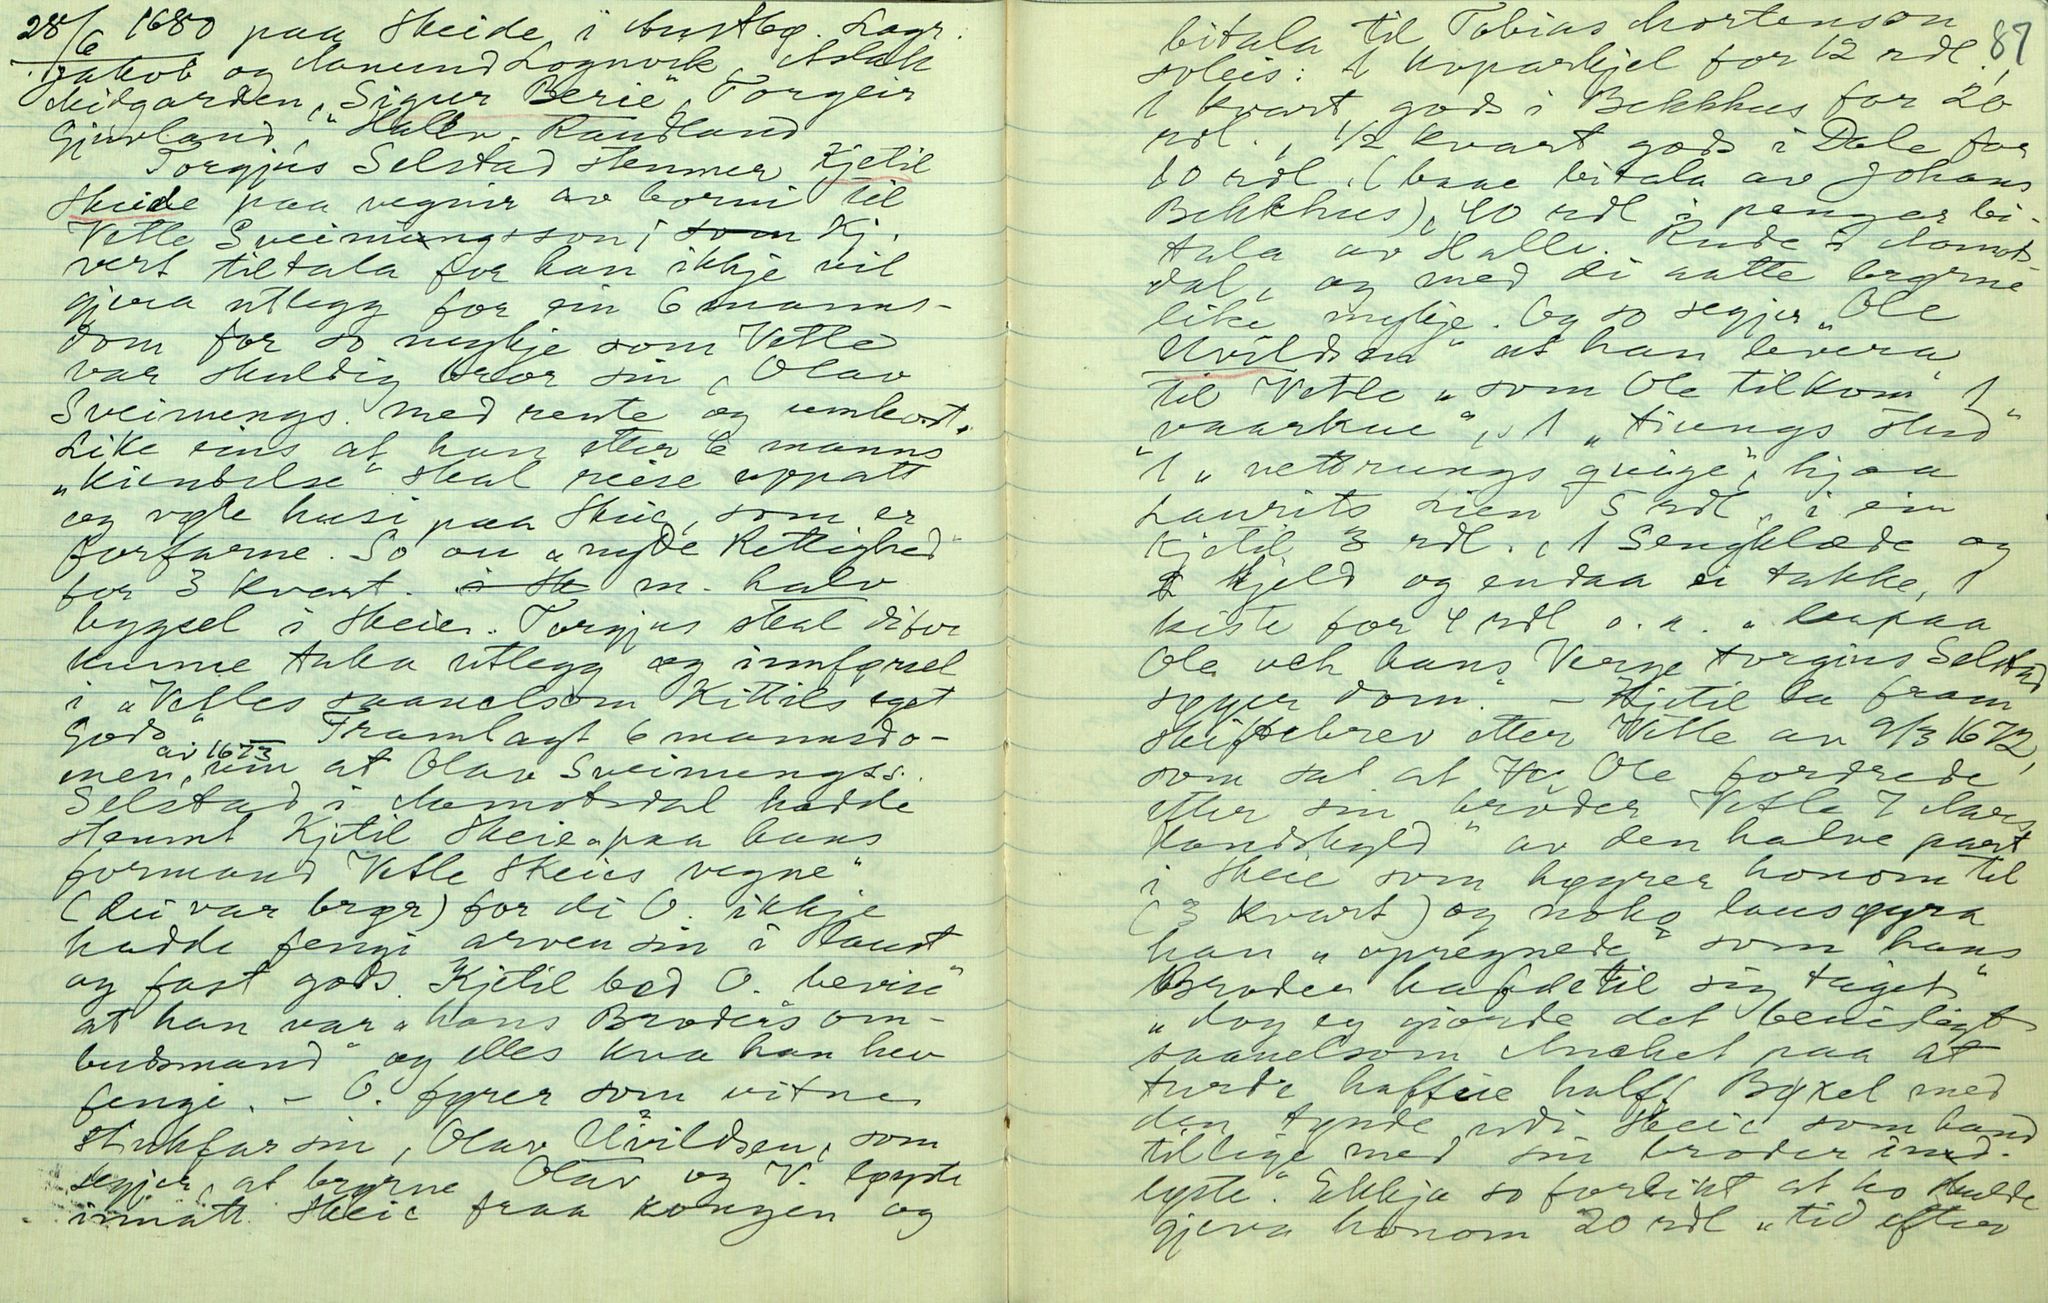 28/6 1680 paa Skeide i Austbø. Lagr.
Jakob og Aamund Lognvik, Aslak
Midgarden, "Sigur Berie", Torgeir
Gjuvland, Hallv. Raudland
Torgjus Selstad stemner Kjetil
Skeide paa vegner av borni til
Vetle Sveinungsson; som Kj.
vert tiltala for han ikkje vil
gjera utlegg for ein 6 manns-
dom for so mykje som Vetle
var skuldig bror sin, Olav
Sveinungs. med rente og umkost.
Like eins at han etter 6 manns
"kiendelse" skal reise uppatt
og vøle husi paa Skeie, som er
forfarne. So au "nyde Rettighed"
for 3 kvart. i Sk m. halv
bygsel i Skeie. Torgjus skal difor
kunne taka utlegg og innførsel
i "Vetles saavelsom Kittils eget
Gods" Framlagt 6 mannsdo-
men av 1673, um at Olav Sveinungss.
Selstad i Aamotsdal hadde
stemnt Kjetil Skeie "paa hans
formand Vetle Skeies vegne"
(dei var brør) for di O. ikkje
hadde fengi arven sin i Laust
og fast gods. Kjetil bad O. bevise
at han var "hans Broders om-
budsmand" og elles kva han hev
fengi. - O. fører som vitne
stukfar sin, Olav Uvildsen, som
segjer, at brørne Olav og V. løyste
innatt Skeie fraa kongen og
87
bitala til Tobias Mortenson
soleis: 1 koparkjel for 12 rdl.,
1 kvart gods i Bekkhus for 20
rdl., 1/2 kvart gods i Dale for
10 rdl. (baae bitala av Johans
Bekkhus), 40 rdl i pengar bi-
tala av Hallv. Rude i Aamots-
dal, og med di aatte brørne
like mykje. Og so segjer "Ole
Uvildsen" at han levera
til Vetle "som Ole tilkom" 1
"vaarkue", 1 "tiungs Stud"
1 "vettrungs quige", hjaa
Laurits Lien 5 rdl, i ein
Kjetil 3 rdl., 1 Sengklæde og
1 Skjeld og endaa ei takke, 1
kiste for 4 rdl o.a. "
Ole och hans Verge Torgius Selstad
søger dom." - Kjetil la fram
Skiftebrev etter Vetle av 9/3 1672,
som sa at Ve Ole fordrede
efter sin bróder Vetle 7 Aars
Landskyld" av den halve part
i Skeie som høyrer honom til
(3 kvart) og noko lausøyra
han "opregnede som hans
Broder hafde til sig taget"
"dog ey giorde det beuisligt
saavelsom Anchet paa at
turde haffue halff Bøxel med
den tynde udi Skeie som hand
tillige med sin broder ind-
løste". Ekkja so forlikt at ho skulde
gjeva honom 20 rdl "tid efter